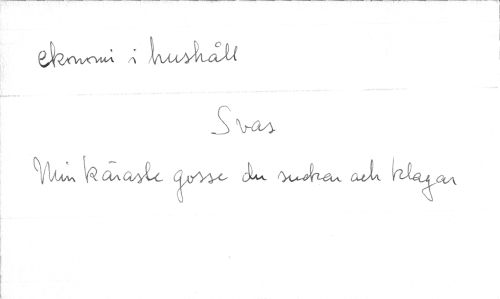 ekonomi i hushåll
Svar
Min käraste gosse du suckar och klagar